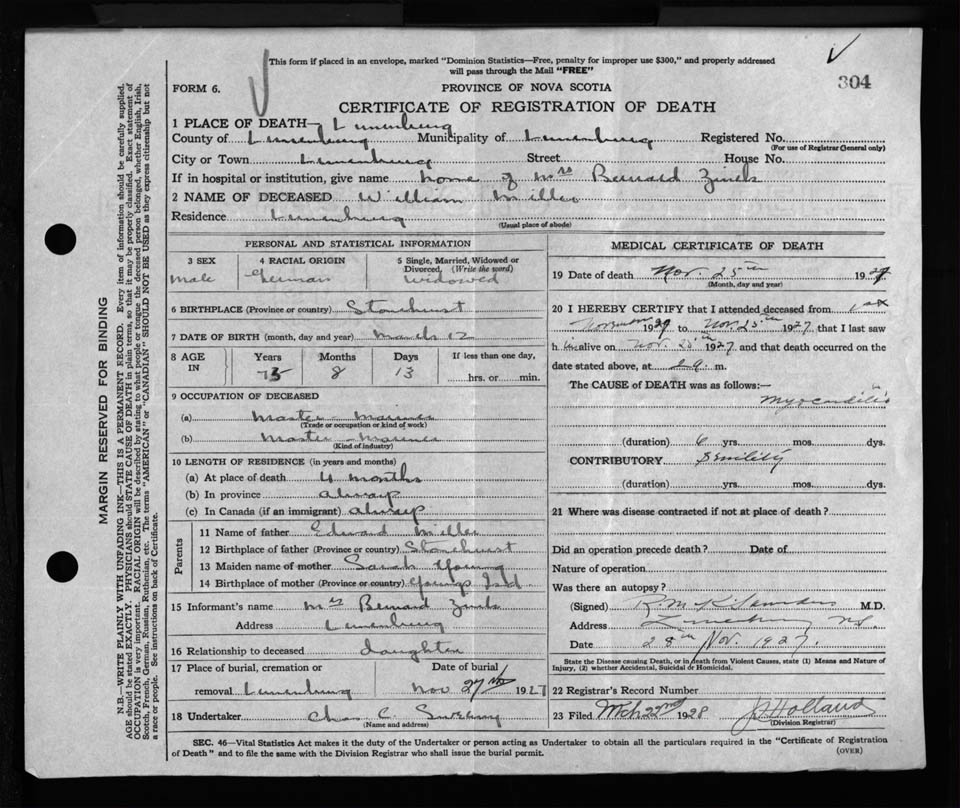 This form if placed in an envelope, marked "Dominion Statistics—Free, penalty for improper use $300," and properly addressed
will pass through the Mail "FREE"
304
FORM 6.
PROVINCE OF NOVA SCOTIA
CERTIFICATE OF REGISTRATION OF DEATH
1 PLACE OF DEATH— Lunenburg
County of Lunenburg Municipality of Lunenburg Registered No.
(For use of Registrar General only)
City or Town Lunenburg Street House No.
If in hospital or institution, give name home of Mrs Bernard Zinck
2 NAME OF DECEASED William Miller
Residence Lunenburg
(Usual place of abode)
PERSONAL AND STATISTICAL INFORMATION
3 SEX 4 RACIAL ORIGIN 5 Single, Married, Widowed or
Divorced. (Write the word)
Male German Widowed
6 BIRTHPLACE (Province or country) Stonehurst
7 DATE OF BIRTH (month, day and year) March 12
8 AGE IN Years Months Days If less than one day,
75 8 13 hrs. or min.
9 OCCUPATION OF DECEASED
(a) Master - Mariner
(Trade or occupation or kind of work)
(b) Master - Mariner
(Kind of industry)
10 LENGTH OF RESIDENCE (in years and months)
(a) At place of death 4 months
(b) In province always
(c) In Canada (if an immigrant) always
Parents
11 Name of father Edward Miller
12 Birthplace of father (Province or country) Stonehurst
13 Maiden name of mother Sarah Young
14 Birthplace of mother (Province or country) Youngs Isld
15 Informant's name Mrs Bernard Zinck
Address Lunenburg
16 Relationship to deceased daughter
17 Place of burial, cremation or Date of burial
removal Lunenburg Nov 27th 1927
18 Undertaker Chas C. Sweeny
(Name and address)
MEDICAL CERTIFICATE OF DEATH
19 Date of death Nov. 25th 1927
(Month, day and year)
20 I HEREBY CERTIFY that I attended deceased from 1st
November 1927 to Nov 25th 1927 that I last saw
h im alive on Nov. 25th 1927 and that death occurred on
date stated above, at m.
The CAUSE of DEATH was as follows:—
Myocarditis
(duration) 6 yrs. mos. dys.
CONTRIBUTORY Senility
(duration) yrs. mos. dys.
21 Where was disease contracted if not at place of death?
Did an operation precede death? Date of
Nature of operation
Was there an autopsy?
(Signed) R. McK. Saunders M.D.
Address Lunenburg NS.
Date 28th Nov. 1927.
State the Disease causing Death, or in death from Violent Causes, state (1) Means and Nature of
Injury, (2) whether Accidental, Suicidal or Homicidal.
22 Registrar's Record Number
23 Filed Mch 22nd 1928 Holland
(Division Registrar)
SEC. 46—Vital Statistics Act makes it the duty of the Undertaker or person acting as Undertaker to obtain all the particulars required in the "Certificate of Registration
of Death" and to file the same with the Division Registrar who shall issue the burial permit.
(OVER)
MARGIN RESERVED FOR BINDING
N.B.—WRITE PLAINLY WITH UNFADING INK—THIS IS A PERMANENT RECORD. Every item of information should be carefully supplied.
AGE should be stated EXACTLY. PHYSICIANS should STATE CAUSE OF DEATH in plain terms, so that it may be properly classified. Exact statement of
OCCUPATION is very important. RACIAL ORIGIN will be described by stating to what people or tongue the deceased person belonged, whether English, Irish,
Scotch, French, German, Russian, Ruthenian, etc. The terms "AMERICAN" or "CANADIAN" SHOULD NOT BE USED as they express citizenship but not
a race or people. See instructions on back of Certificate.